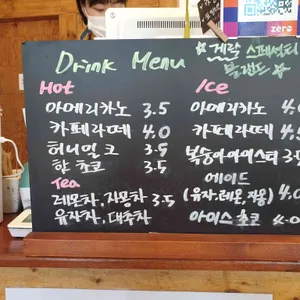 Drink Menu
Hot
아메리카노 3.5
카페라떼 4.0
허니밀크 3.5
핫초코 3.5
Tea
레몬차, 자몽차 3.5
유자차, 대추차
☆ 게락 스페셜티
블렌드 ☆
Ice
아메리카노
카페라떼 4.0
복숭아아이스티 3.5
에이드
(유자,레몬,자몽) 4.0
아이스초코 4.0
zero